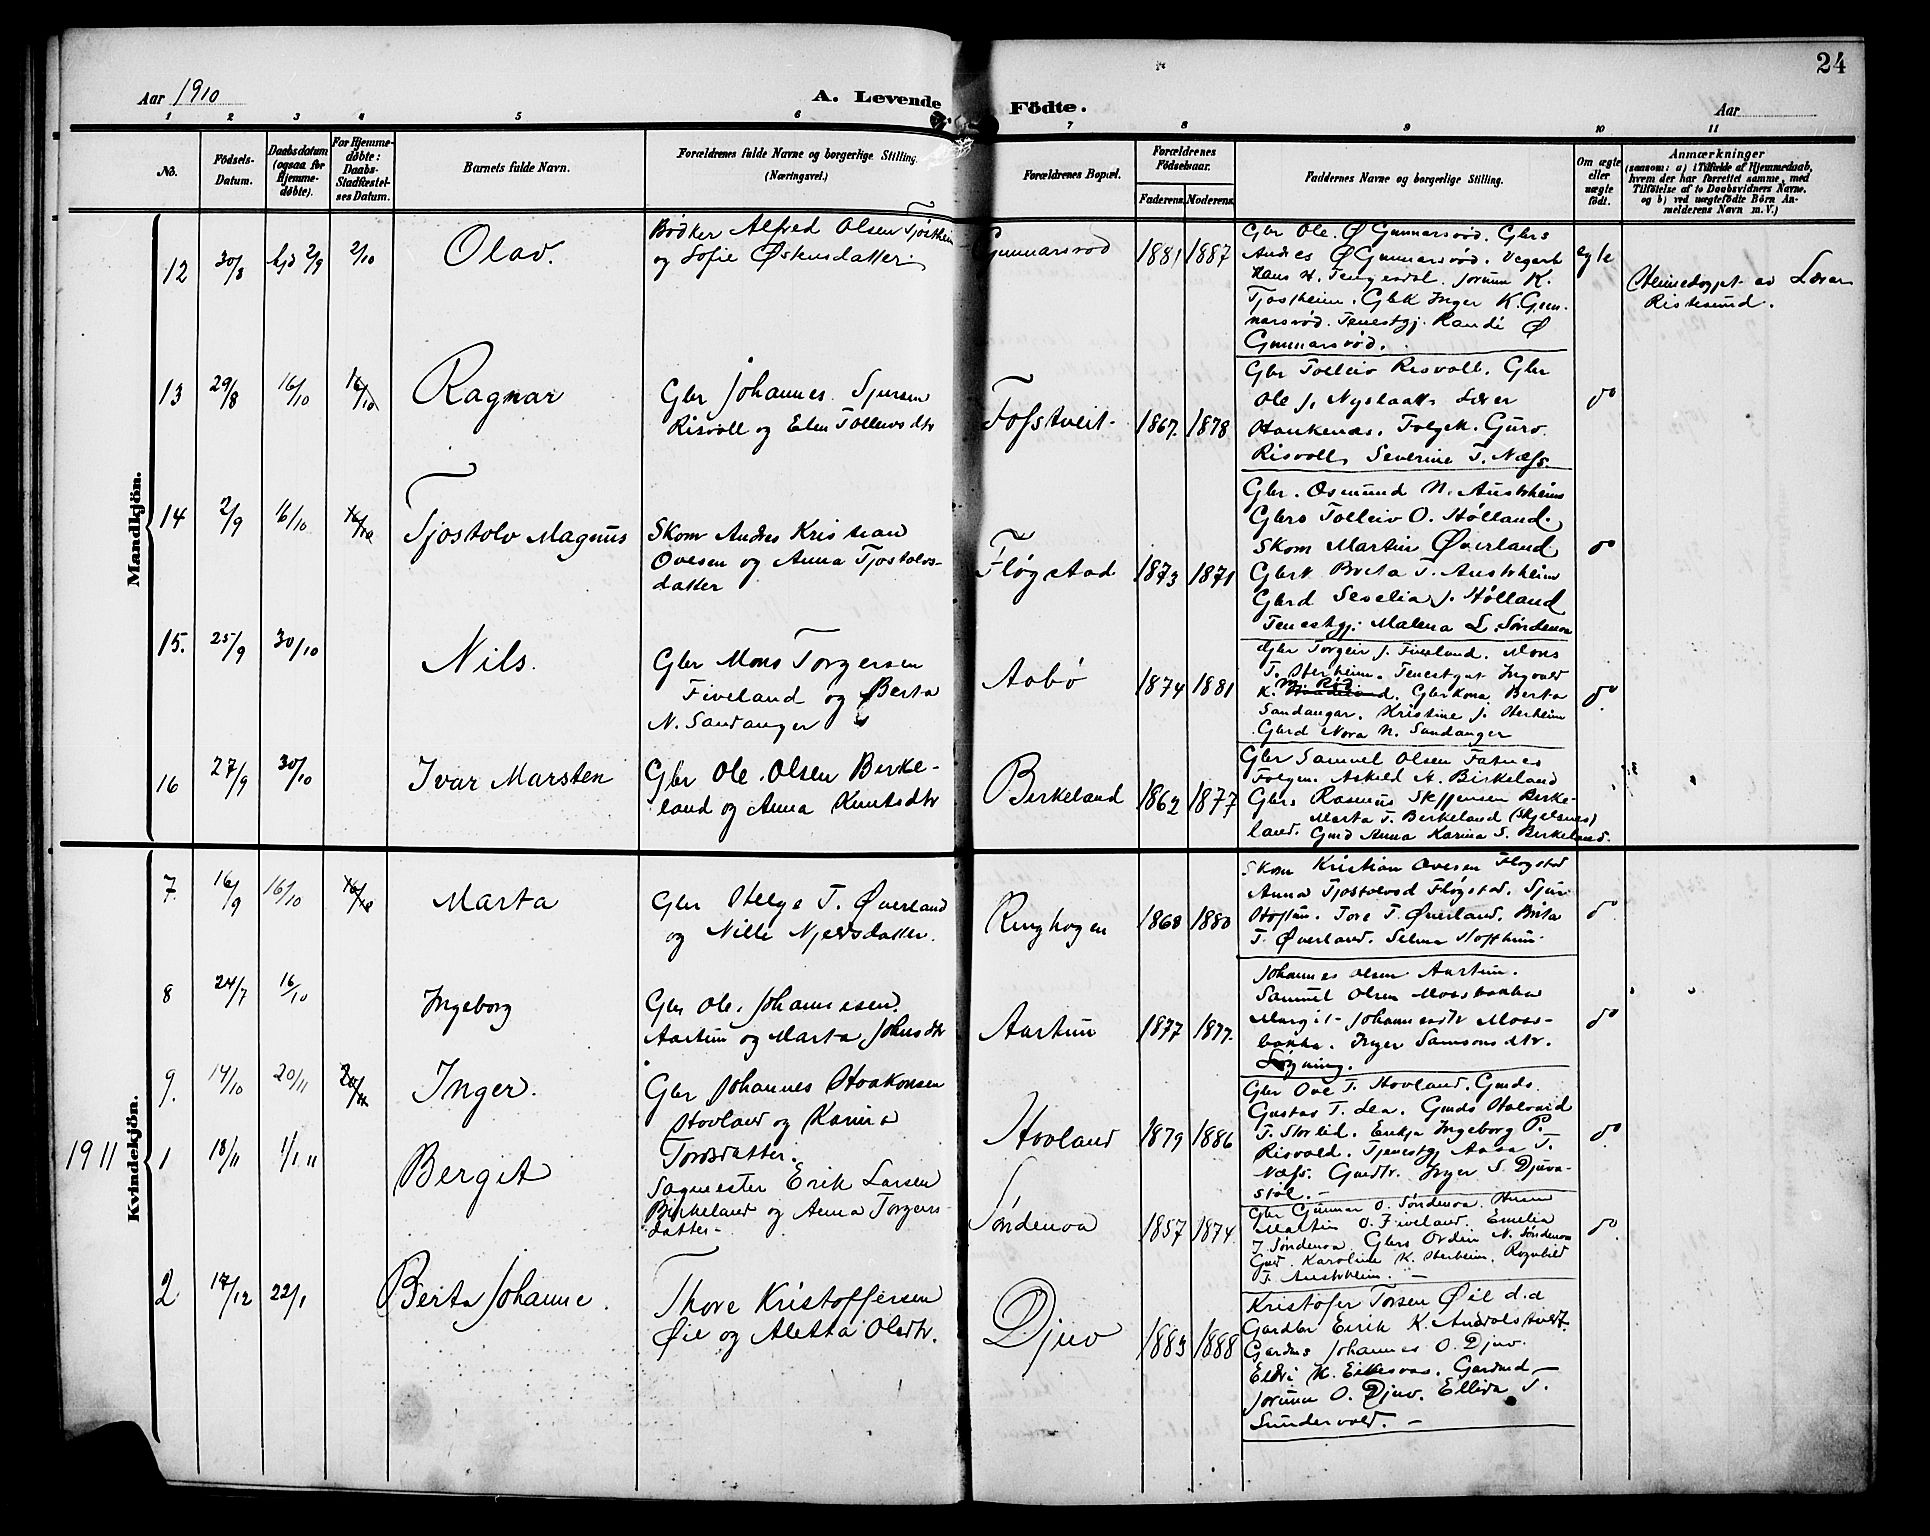 24
Aar 1910
A. Levende Födte.
Aar
1 2 3 4 5 6 7 8 9 10 11
No.
Födsels-Datum.
Daabsdatum (ogsaa for Hjemme-døbte).
For Hjemme-døbte: Daabs-Stadfæstel-ses Datum.
Barnets fulde Navn.
Forældrenes fulde Navne og borgerlige Stilling.
(Næringsvei.)
Forældrenes Bopæl.
Forældrenes Födselsaar.
Faderens. Moderens.
Faddernes Navne og borgerlige Stilling.
Om ægte eller uægte födt.
Anmærkninger
(saasom: a) i Tilfælde af Hjemmedaab,
hvem der har forrettet samme, med
Tilföielse af to Daabsvidners Navne.
og b) ved uægtefödte Börn An-
melderens Navn m. V.)
Mandkjön.
12 30/8 hjd 2/9 2/10 Olav.
Bødker Alfred Olsen Tjøstheim
og Sofie Østensdatter.
Gunnarsvod 1881 1887
Gbr Ole. Ø Gunnarsvød. Gbrs
Andres Ø Gunnarsvød. Vegard
Hans H. Tengesdal. Jorunn K.
Tjostheim. Gbk Inger K. Gun-
narsvød. Tenestgj. Randi Ø
Gunnarsvød.
egte
Heimedøypt av Lærer
Ristesund.
13 29/8 16/10 16/10 Ragnar
Gbr Johannes Sjursen
Risvoll og Elen Tolleivsdtr
Fosstveit 1867. 1878
Gbr Tolleiv Risvoll. Gbr
Ole J. Nystaatt Lærer
Haukenæs. Folgek. Guro
Risvoll, Severine T. Næss.
do
14 2/9 16/10 16/10 Tjostolv Magnus
Skom Andres Kristian
Ovesen og Anna Tjostolvs-
datter
Fløgstad 1873 1871
Gbr. Osmund N. Austrheim
Gbrs Tolleiv O. Hólland.
Skom Martin Øverland
Gbrk Berta T. Austrheim
Gbrd Seselia J. Hólland
Tenestgj. Malena L. Søndenaa
do
15. 25/9 30/10 Nils.
Gbr Mons Torgersen
Fiveland og Berta
N. Sandanger
Aabø 1874 1881
Gbr Torgeir J. Fiveland. Mons
T. Herheim. Tenestgut Ingvald
K. M. Rød. Gbrkona Berta
Sandangar. Kristine J. Herheim
Gbrd Nora N. Sandanger
do.
16 27/9 30/10 Ivar Marsten
Gbr Ole. Olsen Birke-
land og Anna Knutsdtr
Birkeland 1862 1877
Gbr Samuel Olsen Fatnes
Folgem. Askild A. Birkeland
Gbrs Rasmus Steffensen Birke-
land. Marta T. Birkeland (Skjelsnes)
Gmd Anna Karina S. Birkeland.
Kvindekjön.
7. 16/9 16/10 16/10 Marta
Gbr Helge T. Øverland
og Nille Njedsdatter.
Ringhogen 1868 1880
Skom Kristian Ovesen Flogstad
Anna Tjostolvsd Fløgstad. Sjur
Hoftun. Tore T. Øverland. Brita
T. Øverland. Selma Hofthun.
do
8 24/7 16/10 Ingeborg
Gbr Ole. Johannesen.
Aartun og Marta Johnsdtr
Aartun 1877 1877.
Johannes Olsen. Aartun.
Samuel Olsen Mossbakka
Margit Johannesdtr Moss-
bakka. Inger Samsonsdtr.
Løgning.
do
9. 14/10 20/11 20/11 Inger.
Gbr Johannes Haakonsen
Hovland og Karina
Toresdatter.
Hovland 1879 1886
Gbr Ove T. Hovland. Gmds
Gustav T. Lea. Gmds Halvard
T. Storlid. Enkja Ingeborg P.
Risvold. Tjenestgj Aasa T.
Næss. Gmdtr. Inger S. Djuva-
støl.
do
1911
1 18/11 1/1 11 Bergit
Sagmester Erik Larsen
Birkeland og Anna Torgers-
datter
Søndenaa 1857 1874.
Gbr Gunnar O. Søndenaa. Husm
Martin O. Fiveland. Emelia
J. Søndenaa Gbrs Ordin N. Søndenaa
Gmd. Karoline K. Herheim. Ragnhild
T. Austrheim.
do
2 17/12 22/1 Berta Johanne.
Thore Kristoffersen
Øie og Aletta Olsdtr.
Djuv 1883 1888
Kristofer Torsen Øie d.d
Gardbr Eirik K. Andvolstvedt.
Gardms Johannes O. Djuv.
Eldri K. Eikesvas. Gardmd
Jorunn O. Djuv. Ellida T.
Sundervold.